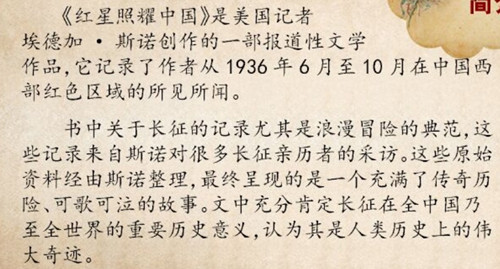 简介
《红星照耀中国》是美国记者
埃德加·斯诺创作的一部报道性文学
作品，它记录了作者从1936年6月至10月在中国西
部红色区域的所见所闻。
书中关于长征的记录尤其是浪漫冒险的典范，这
些记录来自斯诺对很多长征亲历者的采访。这些原始
资料经由斯诺整理，最终呈现的是一个充满了传奇历
险、可歌可泣的故事。文中充分肯定长征在全中国乃
至全世界的重要历史意义，认为其是人类历史上的伟
大奇迹。